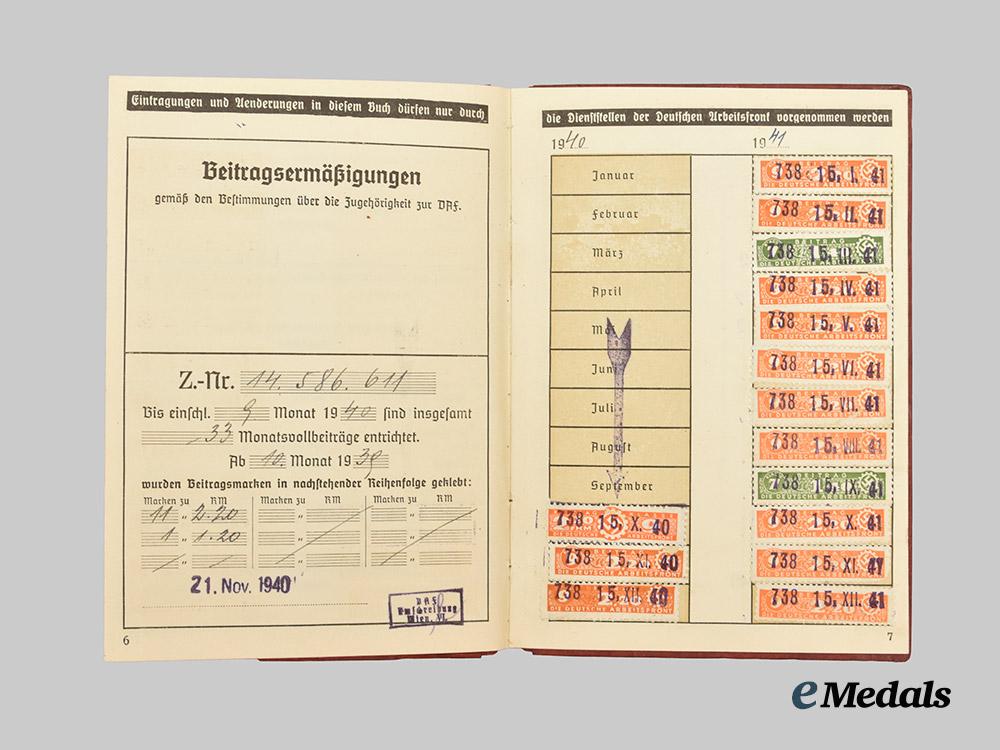 Eintragungen und Aenderungen in diesem Buch dürfen nur durch
Beitragsermäßigungen
gemäß den Bestimmungen über die Zugehörigkeit zur DAF.
Z.-Nr. 14.586.611
Bis einschl. 9 Monat 1940 sind insgesamt
33 Monatsvollbeiträge entrichtet.
Ab 10. Monat 1939
wurden Beitragsmarken in nachstehender Reihenfolge geklebt:
Marken zu RM Marken zu RM Marken zu RM
11 " 2.20 " "
1 " 1.20 " "
" " "
21. Nov. 1940
DAF
Umschreibung
Wien, VI.
6
die Dienststellen der Deutschen Arbeitsfront vorgenommen werden
1940 1941
Januar 738 15. I. 41
Februar 738 15. II. 41
März 738 15. III. 41
April 738 15. IV. 41
Mai 738 15. V. 41
Juni 738 15. VI. 41
Juli 738 15. VII. 41
August 738 15. VIII. 41
September 738 15. IX. 41
738 15. X. 40 738 15. X. 41
738 15. XI. 40 738 15. XI. 41
738 15. XII. 40 738 15. XII. 41
DIE DEUTSCHE ARBEITSFRONT
7
eMedals